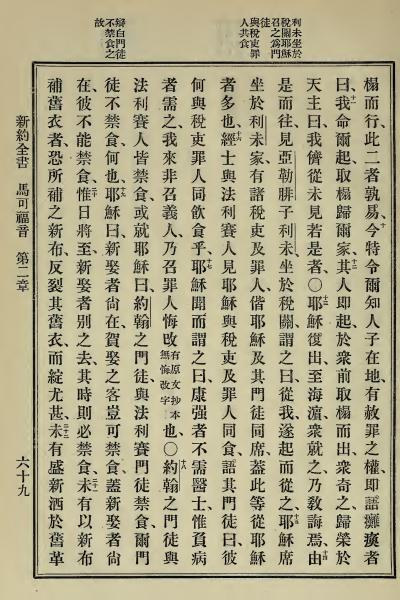 利未坐於
稅關耶穌
召之爲門
徒
與稅吏罪
人共食
辯白門徒
不禁食之
故
榻而行、此二者孰易、今特令爾知人子在地、有赦罪之權、即語癱瘓者
曰、我命爾起、取榻歸爾家、其人即起、於衆前取榻而出、衆奇之、歸榮於
天主曰、我儕從未見若是者、○耶穌復出至海濱、衆就之、乃敎誨焉、由
是而往、見亞勒腓子利未、坐於稅關、謂之曰、從我、遂起而從之、耶穌席
坐於利未家、有諸稅吏及罪人、偕耶穌及其門徒同席、蓋此等從耶穌
者多也、經士與法利賽人、見耶穌與稅吏及罪人同食、語其門徒曰、彼
何與稅吏罪人同飮食乎、耶穌聞而謂之曰、康强者不需醫士、惟負病
者需之、我來非召義人、乃召罪人悔改有原文抄本無悔改字也、○約翰之門徒與
法利賽人皆禁食、或就耶穌曰、約翰之門徒、與法利賽門徒禁食、爾門
徒不禁食、何也、耶穌曰、新娶者尙在、賀娶之客、豈可禁食、蓋新娶者尙
在、彼不能禁食、惟日將至、新娶者別之去、其時則必禁食、未有以新布
補舊衣者、恐所補之新布、反裂其舊衣、而綻尤甚、未有盛新酒於舊革
新約全書 馬可福音 第二章 六十九